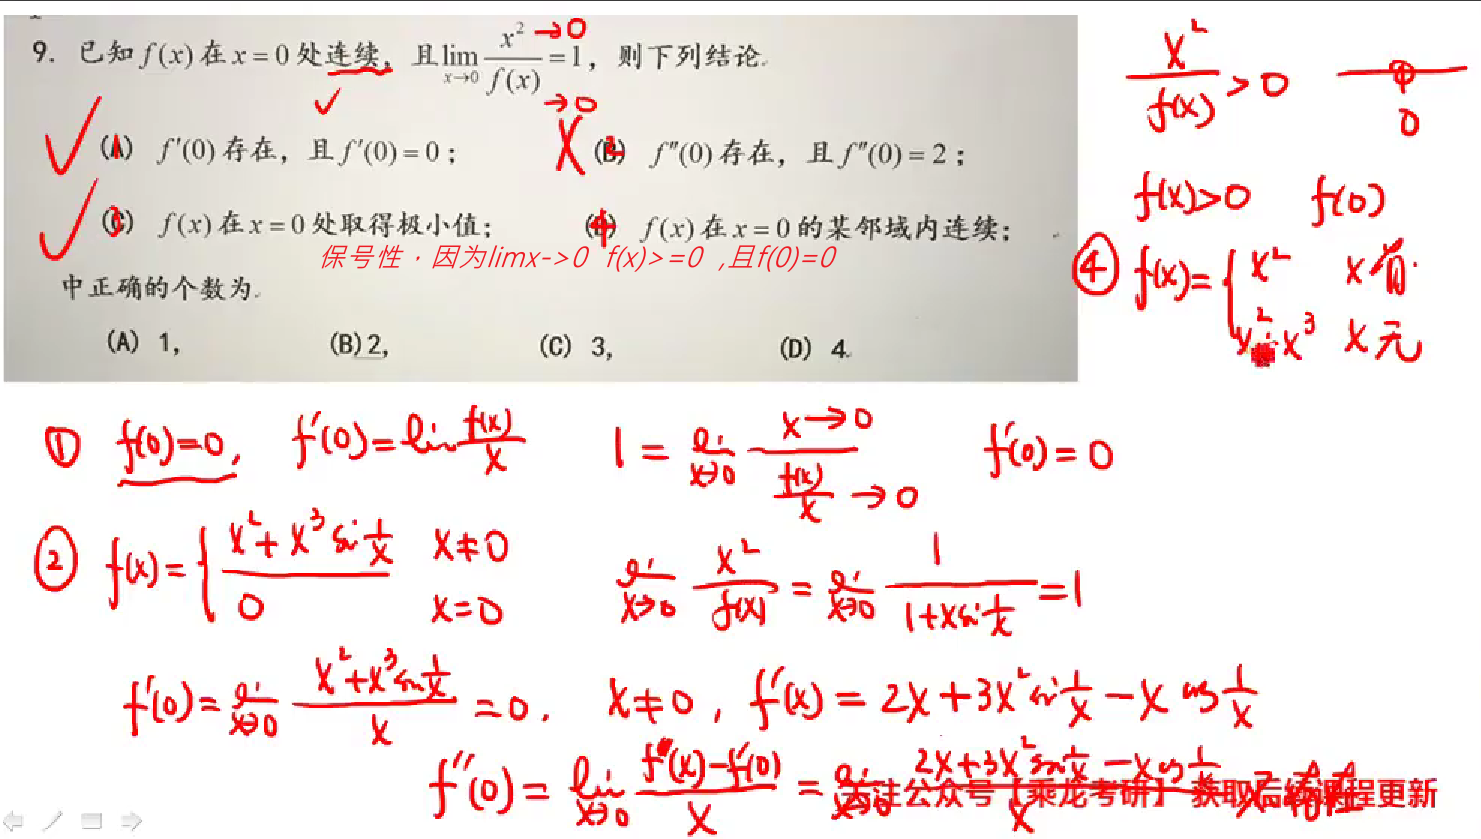 9. 已知 f(x) 在 x = 0 处连续，且 lim_{x→0} x²/f(x) = 1，则下列结论
→0
→0
(A) 1 f′(0) 存在，且 f′(0) = 0；
(B) 2 f″(0) 存在，且 f″(0) = 2；
(C) 3 f(x) 在 x = 0 处取得极小值；
4 f(x) 在 x = 0 的某邻域内连续；
保号性，因为limx->0 f(x)>=0 ,且f(0)=0
中正确的个数为
(A) 1, (B) 2, (C) 3, (D) 4.
x²/f(x) > 0
0
f(x)>0 f(0)
④ f(x)= { x² x有
x² x³ x无
① f(0)=0, f′(0)=lim f(x)/x 1 = lim_{x→0} x→0 / (f(x)/x) →0 f′(0)=0
② f(x)= { x²+x³ sin 1/x x≠0
0 x=0
lim_{x→0} x²/f(x) = lim_{x→0} 1/(1+x sin 1/x) = 1
f′(0)= lim_{x→0} (x²+x³ sin 1/x)/x = 0. x≠0, f′(x) = 2x+3x² sin 1/x − x cos 1/x
f″(0) = lim_{x→0} (f′(x)−f′(0))/x = lim_{x→0} (2x+3x² sin 1/x − x cos 1/x)/x 不存在
关注公众号【乘龙考研】获取后续课程更新